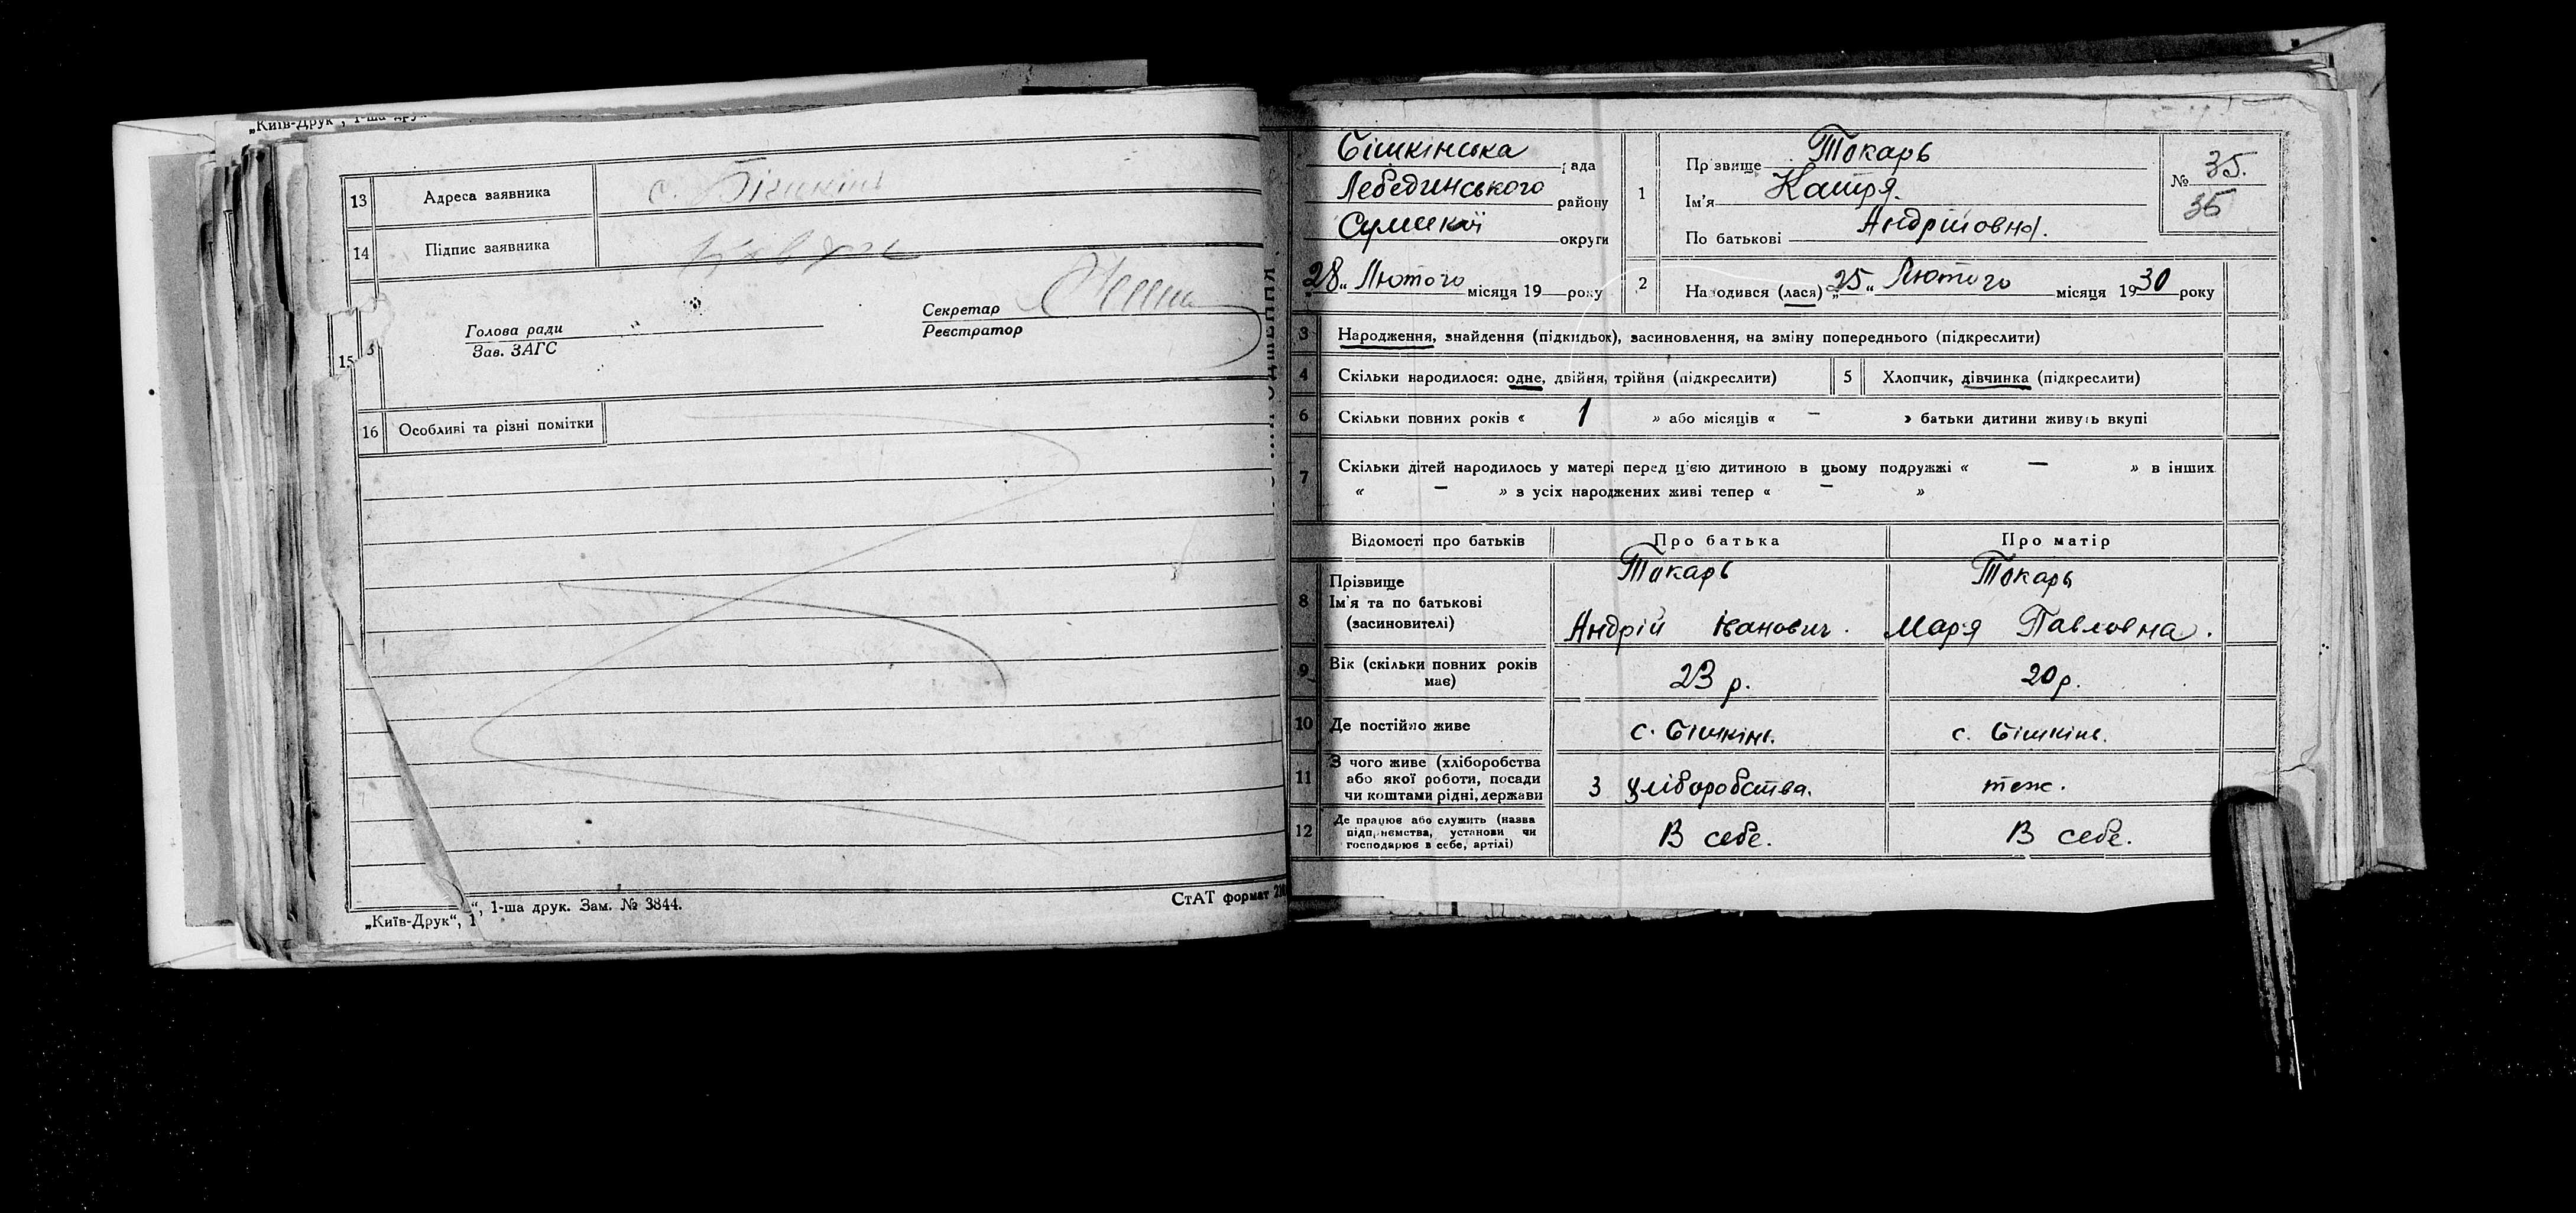 „Київ-Друк“, 1-ша друк.
13 Адреса заявника с. Бішкінь
14 Підпис заявника
15 Голова ради Секретар
Зав. ЗАГС Реєстратор
16 Особливі та різні помітки
“, 1-ша друк. Зам. № 3844.
„Київ-Друк“, 1
СтАТ формат 210
Бішкінська рада
Лебединського району
Сумської округи
„28“ Лютого місяця 19 року
1 Прізвище Токарь
Ім'я Катря.
По батькові Андрійовна.
№ 35.
35
2 Народився (лася) „25“ Лютого місяця 1930 року
3 Народження, знайдення (підкидьок), засиновлення, на зміну попереднього (підкреслити)
4 Скільки народилося: одне, двійня, трійня (підкреслити) 5 Хлопчик, дівчинка (підкреслити)
6 Скільки повних років « 1 » або місяців « – » батьки дитини живуть вкупі
7 Скільки дітей народилось у матері перед ц'єю дитиною в цьому подружжі « – » в інших
« – » з усіх народжених живі тепер « – »
Відомості про батьків Про батька Про матір
8 Прізвище Токарь Токарь
Ім'я та по батькові
(засиновителі) Андрій Іванович. Маря Павловна.
9 Вік (скільки повних років має) 23 р. 20 р.
10 Де постійно живе с. Бішкінь. с. Бішкінь.
11 З чого живе (хліборобства
або якої роботи, посади
чи коштами рідні, держави
З хліборобства. теж.
12 Де працює або служить (назва
підприємства, установи чи
господарює в себе, артілі)
В себе. В себе.